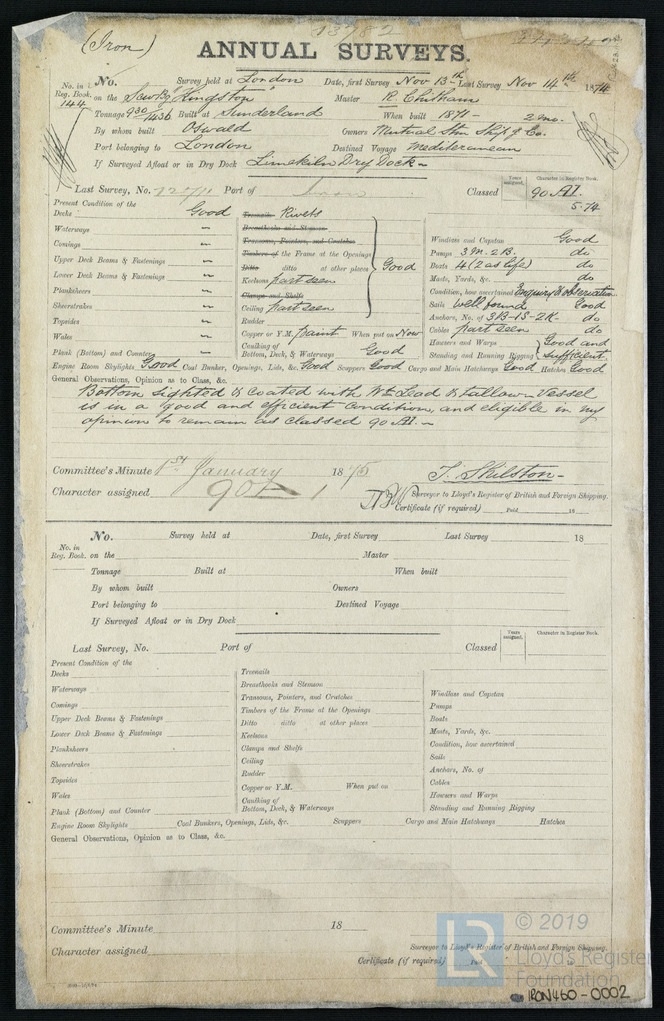 13782
(Iron)
ANNUAL SURVEYS.
No. in Reg. Book. 144
No. Survey held at London Date, first Survey Nov 13th Last Survey Nov 14th 1874
on the Screw Br "Kingston" Master R Chitham
Tonnage 930/1436 Built at Sunderland When built 1871 - 2 mo.
By whom built Oswald Owners Mutual Stm Ship & Co.
Port belonging to London Destined Voyage Mediterranean
If Surveyed Afloat or in Dry Dock Limekiln Dry Dock
Last Survey, No. Port of Classed Years assigned. Character in Register Book. 90 A1. 5.74
Present Condition of the
Decks Good
Waterways "
Comings "
Upper Deck Beams & Fastenings "
Lower Deck Beams & Fastenings "
Planksheers "
Sheerstrakes "
Topsides "
Wales "
Plank (Bottom) and Counter Good
Treenails Rivets
Breasthooks and Stemson
Transoms, Pointers, and Crutches
Timbers of the Frame at the Openings
Ditto ditto at other places Good
Keelsons part seen
Clamps and Shelfs
Ceiling part seen
Rudder
Copper or Y.M. paint When put on Now
Caulking of Bottom, Deck, & Waterways Good
Windlass and Capstan Good
Pumps 3 M. 2 B. do
Boats 4 (2 as life) do
Masts, Yards, &c. do
Condition, how ascertained Enquiry & observation
Sails Well found Good
Anchors, No. of 3B-1S-2K do
Cables part seen do
Hawsers and Warps Good and
Standing and Running Rigging sufficient
Engine Room Skylights Good Coal Bunker, Openings, Lids, &c. Good Scuppers Good Cargo and Main Hatchways Good Hatches Good
General Observations, Opinion as to Class, &c.
Bottom sighted & coated with Wh Lead & tallow - Vessel
is in a good and efficient condition, and eligible in my
opinion to remain as classed 90 A1.
Committee's Minute 1st January 1875
Character assigned 90 A 1
T. Skilston
Surveyor to Lloyd's Register of British and Foreign Shipping.
Certificate (if required) Paid 18
No. Survey held at Date, first Survey Last Survey 18
No. in Reg. Book. on the Master
Tonnage Built at When built
By whom built Owners
Port belonging to Destined Voyage
If Surveyed Afloat or in Dry Dock
Last Survey, No. Port of Classed Years assigned. Character in Register Book.
Present Condition of the
Decks
Waterways
Comings
Upper Deck Beams & Fastenings
Lower Deck Beams & Fastenings
Planksheers
Sheerstrakes
Topsides
Wales
Plank (Bottom) and Counter
Treenails
Breasthooks and Stemson
Transoms, Pointers, and Crutches
Timbers of the Frame at the Openings
Ditto ditto at other places
Keelsons
Clamps and Shelfs
Ceiling
Rudder
Copper or Y.M. When put on
Caulking of Bottom, Deck, & Waterways
Windlass and Capstan
Pumps
Boats
Masts, Yards, &c.
Condition, how ascertained
Sails
Anchors, No. of
Cables
Hawsers and Warps
Standing and Running Rigging
Engine Room Skylights Coal Bunkers, Openings, Lids, &c. Scuppers Cargo and Main Hatchways Hatches
General Observations, Opinion as to Class, &c.
Committee's Minute 18
Character assigned
Surveyor to Lloyd's Register of British and Foreign Shipping.
Certificate (if required)
LR © 2019
Lloyd's Register
Foundation
IRON460-0002